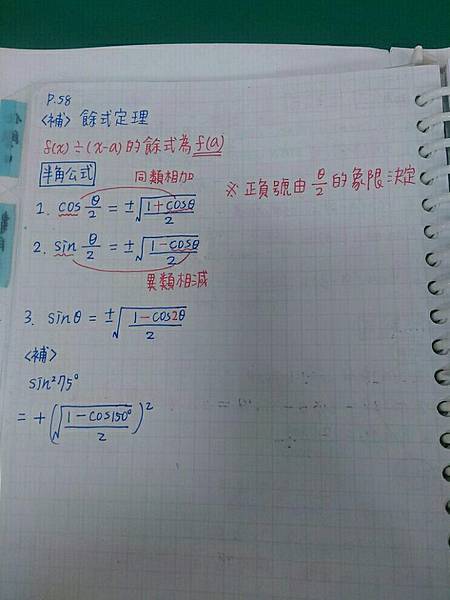 P.58
<補> 餘式定理
f(x)÷(x-a)的餘式為f(a)
半角公式
同類相加
1. cos θ/2 = ±√((1+cosθ)/2)
※ 正負號由 θ/2 的象限決定
2. sin θ/2 = ±√((1-cosθ)/2)
異類相減
3. sinθ = ±√((1-cos2θ)/2)
<補>
sin²75°
= +(√((1-cos150°)/2))²